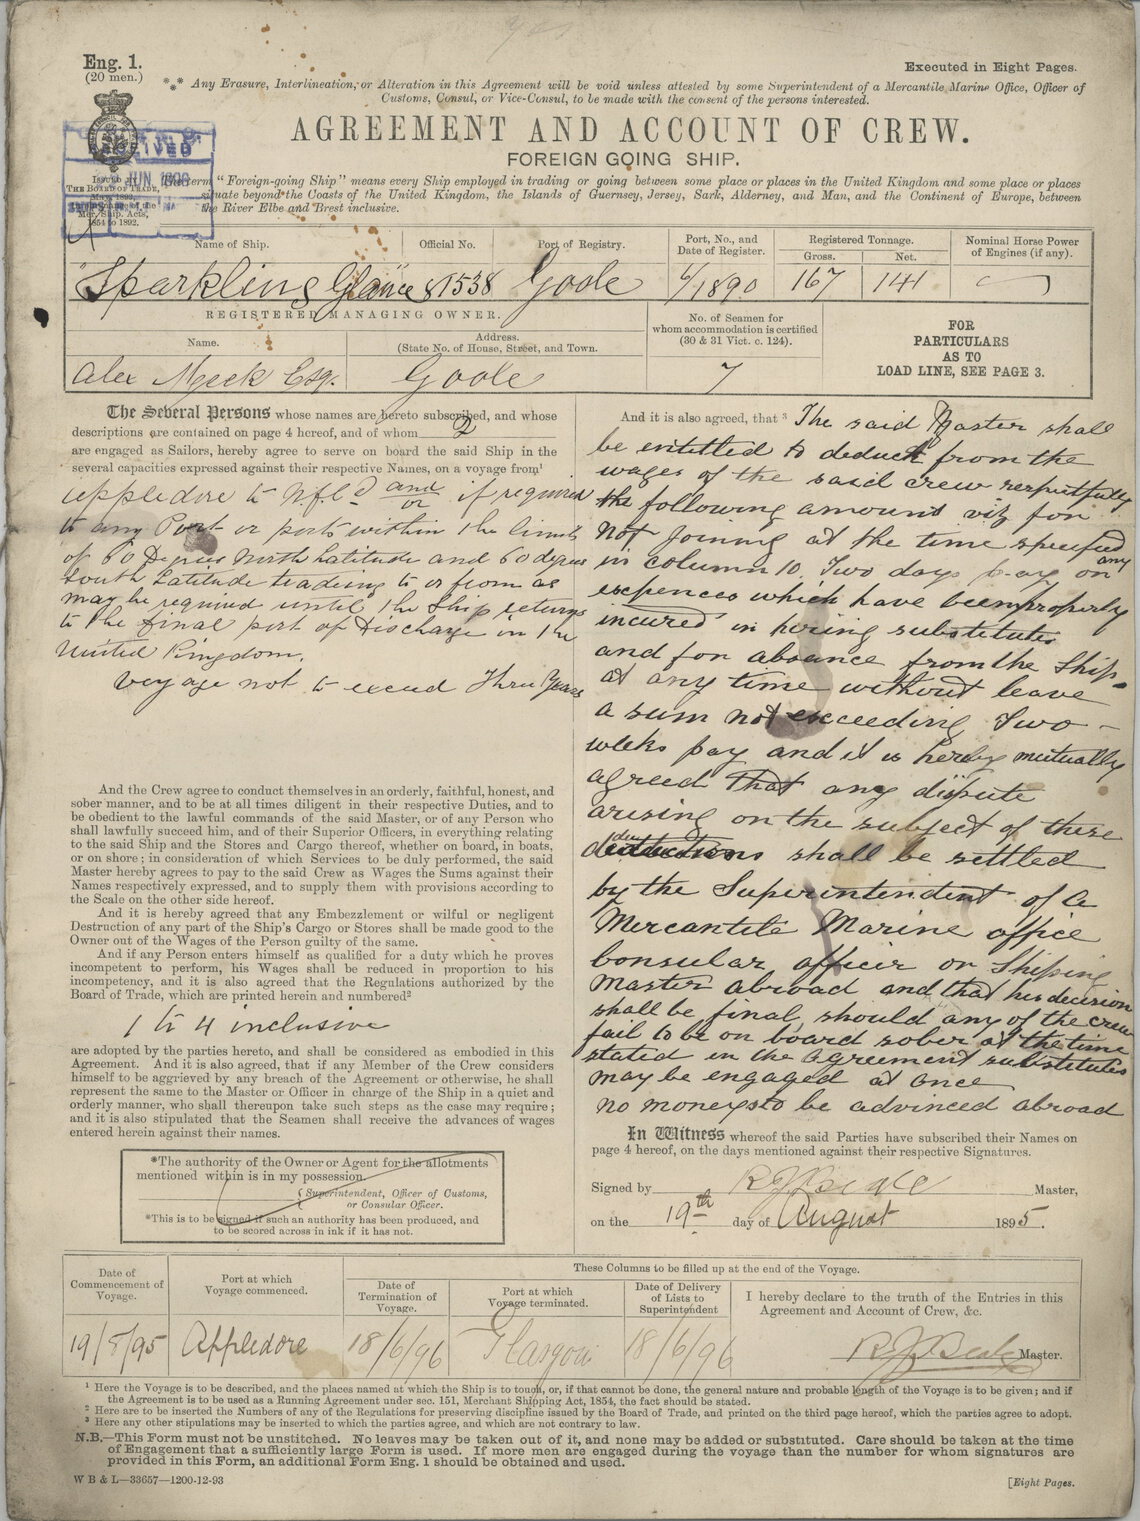 Eng. 1.
(20 men.)
Executed in Eight Pages.
*** Any Erasure, Interlineation, or Alteration in this Agreement will be void unless attested by some Superintendent of a Mercantile Marine Office, Officer of
Customs, Consul, or Vice-Consul, to be made with the consent of the persons interested.
AGREEMENT AND ACCOUNT OF CREW.
FOREIGN GOING SHIP.
JUN 1896
Issued by
THE BOARD OF TRADE,
Mer. Ship. Acts,
1854 to 1892.
term "Foreign-going Ship" means every Ship employed in trading or going between some place or places in the United Kingdom and some place or places
situate beyond the Coasts of the United Kingdom, the Islands of Guernsey, Jersey, Sark, Alderney, and Man, and the Continent of Europe, between
the River Elbe and Brest inclusive.
Name of Ship.
Official No.
Port of Registry.
Port, No., and
Date of Register.
Registered Tonnage.
Gross.
Net.
Nominal Horse Power
of Engines (if any).
"Sparkling Glance" 81538 Goole 6/1890 167 141
REGISTERED MANAGING OWNER.
Name.
Address.
(State No. of House, Street, and Town.
No. of Seamen for
whom accommodation is certified
(30 & 31 Vict. c. 124).
FOR
PARTICULARS
AS TO
LOAD LINE, SEE PAGE 3.
Alex Meek Esq. Goole 7
The Several Persons whose names are hereto subscribed, and whose
descriptions are contained on page 4 hereof, and of whom 2
are engaged as Sailors, hereby agree to serve on board the said Ship in the
several capacities expressed against their respective Names, on a voyage from¹
Appledore to N.f.l.d and/or if required
to any Port or ports within the limits
of 60 Degrees North Latitude and 60 degrees
South Latitude trading to or from as
may be required until the Ship returns
to the final port of Discharge in the
United Kingdom.
Voyage not to exceed Three Years
And the Crew agree to conduct themselves in an orderly, faithful, honest, and
sober manner, and to be at all times diligent in their respective Duties, and to
be obedient to the lawful commands of the said Master, or of any Person who
shall lawfully succeed him, and of their Superior Officers, in everything relating
to the said Ship and the Stores and Cargo thereof, whether on board, in boats,
or on shore; in consideration of which Services to be duly performed, the said
Master hereby agrees to pay to the said Crew as Wages the Sums against their
Names respectively expressed, and to supply them with provisions according to
the Scale on the other side hereof.
And it is hereby agreed that any Embezzlement or wilful or negligent
Destruction of any part of the Ship's Cargo or Stores shall be made good to the
Owner out of the Wages of the Person guilty of the same.
And if any Person enters himself as qualified for a duty which he proves
incompetent to perform, his Wages shall be reduced in proportion to his
incompetency, and it is also agreed that the Regulations authorized by the
Board of Trade, which are printed herein and numbered²
1 to 4 inclusive
are adopted by the parties hereto, and shall be considered as embodied in this
Agreement. And it is also agreed, that if any Member of the Crew considers
himself to be aggrieved by any breach of the Agreement or otherwise, he shall
represent the same to the Master or Officer in charge of the Ship in a quiet and
orderly manner, who shall thereupon take such steps as the case may require;
and it is also stipulated that the Seamen shall receive the advances of wages
entered herein against their names.
*The authority of the Owner or Agent for the allotments
mentioned within is in my possession.
{ Superintendent, Officer of Customs,
or Consular Officer.
*This is to be signed if such an authority has been produced, and
to be scored across in ink if it has not.
And it is also agreed, that ³ The said Master shall
be entitled to deduct from the
wages of the said crew respectfully
the following amounts viz for
Not Joining at the time specified
in column 10. Two days pay or any
expences which have been properly
incured in hiring substitutes
and for absance from the Ship.
at any time without leave
a sum not exceeding Two
weeks pay and it is hereby mutually
agreed That any dispute
arising on the subject of these
deductions shall be settled
by the Superintendent of a
Mercantile Marine office
Consular officer or Shipping
Master abroad and that his decision
shall be final, should any of the crew
fail to be on board sober at the time
stated in the Agreement substitutes
may be engaged at once
no moneys to be advinced abroad
In Witness whereof the said Parties have subscribed their Names on
page 4 hereof, on the days mentioned against their respective Signatures.
Signed by R J Beale Master,
on the 19th day of August 1895.
Date of
Commencement of
Voyage.
Port at which
Voyage commenced.
These Columns to be filled up at the end of the Voyage.
Date of
Termination of
Voyage.
Port at which
Voyage terminated.
Date of Delivery
of Lists to
Superintendent
I hereby declare to the truth of the Entries in this
Agreement and Account of Crew, &c.
19/8/95 Appledore 18/6/96 Glasgow 18/6/96 R J Beale Master.
¹ Here the Voyage is to be described, and the places named at which the Ship is to touch, or, if that cannot be done, the general nature and probable length of the Voyage is to be given; and if
the Agreement is to be used as a Running Agreement under sec. 151, Merchant Shipping Act, 1854, the fact should be stated.
² Here are to be inserted the Numbers of any of the Regulations for preserving discipline issued by the Board of Trade, and printed on the third page hereof, which the parties agree to adopt.
³ Here any other stipulations may be inserted to which the parties agree, and which are not contrary to law.
N.B.—This Form must not be unstitched. No leaves may be taken out of it, and none may be added or substituted. Care should be taken at the time
of Engagement that a sufficiently large Form is used. If more men are engaged during the voyage than the number for whom signatures are
provided in this Form, an additional Form Eng. 1 should be obtained and used.
W B & L—33657—1200-12-93
[Eight Pages.